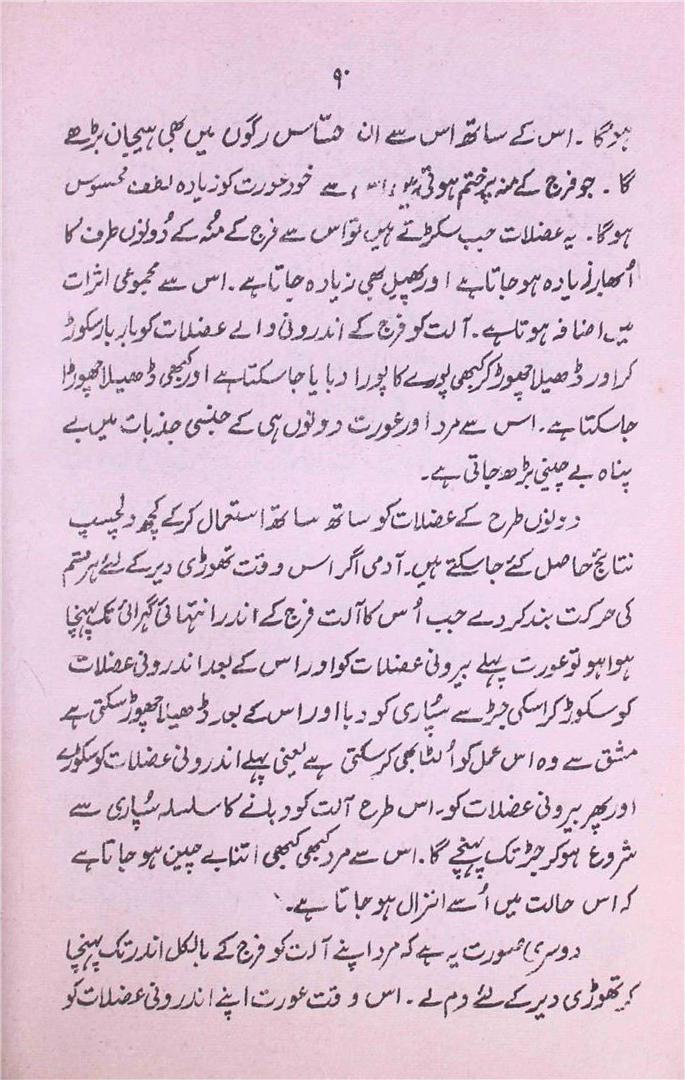 ۹۰
ہوگا ۔ اس کے ساتھ اس سے ان حسّاس رگوں میں بھی ہیجان بڑھے
گا ۔ جو فرج کے منہ پر ختم ہوتی سے خود عورت کو زیادہ لطف محسوس
ہوگا۔ یہ عضلات جب سکڑتے ہیں تو اس سے فرج کے مُنہ کے دُونوں طرف کا
اُبھار زیادہ ہو جاتا ہے اور پھیل بھی زیادہ جاتا ہے ۔ اس سے مجموعی اثرات
میں اضافہ ہوتا ہے ۔ آلت کو فرج کے اندرونی والے عضلات کو بار بار سکوڑ
کر اور ڈھیلا چھوڑ کر کبھی پورے کا پورا دبایا جا سکتا ہے اور کبھی ڈھیلا چھوڑا
جا سکتا ہے ۔ اس سے مرد اور عورت دونوں ہی کے جنسی جذبات میں بے
پناہ بے چینی بڑھ جاتی ہے ۔
دونوں طرح کے عضلات کو ساتھ ساتھ استعمال کر کے کچھ دلچسپ
نتائج حاصل کئے جا سکتے ہیں ۔ آدمی اگر اس وقت تھوڑی دیر کے لئے ہر قسم
کی حرکت بند کر دے جب اُس کا آلت فرج کے اندر انتہائی گہرائی تک پہنچا
ہوا ہو تو عورت پہلے بیرونی عضلات کو اور اس کے بعد اندرونی عضلات
کو سکوڑ کر اسکی جڑ سے سُپاری کو دبا اور اس کے بعد ڈھیلا چھوڑ سکتی ہے
مشق سے وہ اس عمل کو اُلٹا بھی کر سکتی ہے یعنی پہلے اندرونی عضلات کو سکوڑے
اور پھر بیرونی عضلات کو ۔ اس طرح آلت کو دبانے کا سلسلہ سُپاری سے
شروع ہو کر جڑ تک پہنچے گا ۔ اس سے مرد کبھی کبھی اتنا بے چین ہو جاتا ہے
کہ اس حالت میں اُسے انزال ہو جاتا ہے ۔
دوسری صورت یہ ہے کہ مرد اپنے آلت کو فرج کے بالکل اندر تک پہنچا
کر تھوڑی دیر کے لئے دم لے ۔ اس وقت عورت اپنے اندرونی عضلات کو